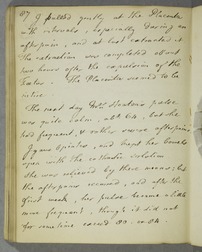 107 I pulled gently at the Placenta
with intervals, especially during an
afterpain, and at last extracted it
The extraction was completed about
two hours after the expulsion of the
Foetus. The Placenta seemed to be
entire.
The next day Mrs pulse
was quite calm, but she
had frequent & rather severe afterpains.
I gave opiates, and kept her bowels
open with the cathartic solution
She was relieved by these means; but
the afterpains recurred, and after the
first week, her pulse became a little
more frequent, though it did not
for sometime exceed